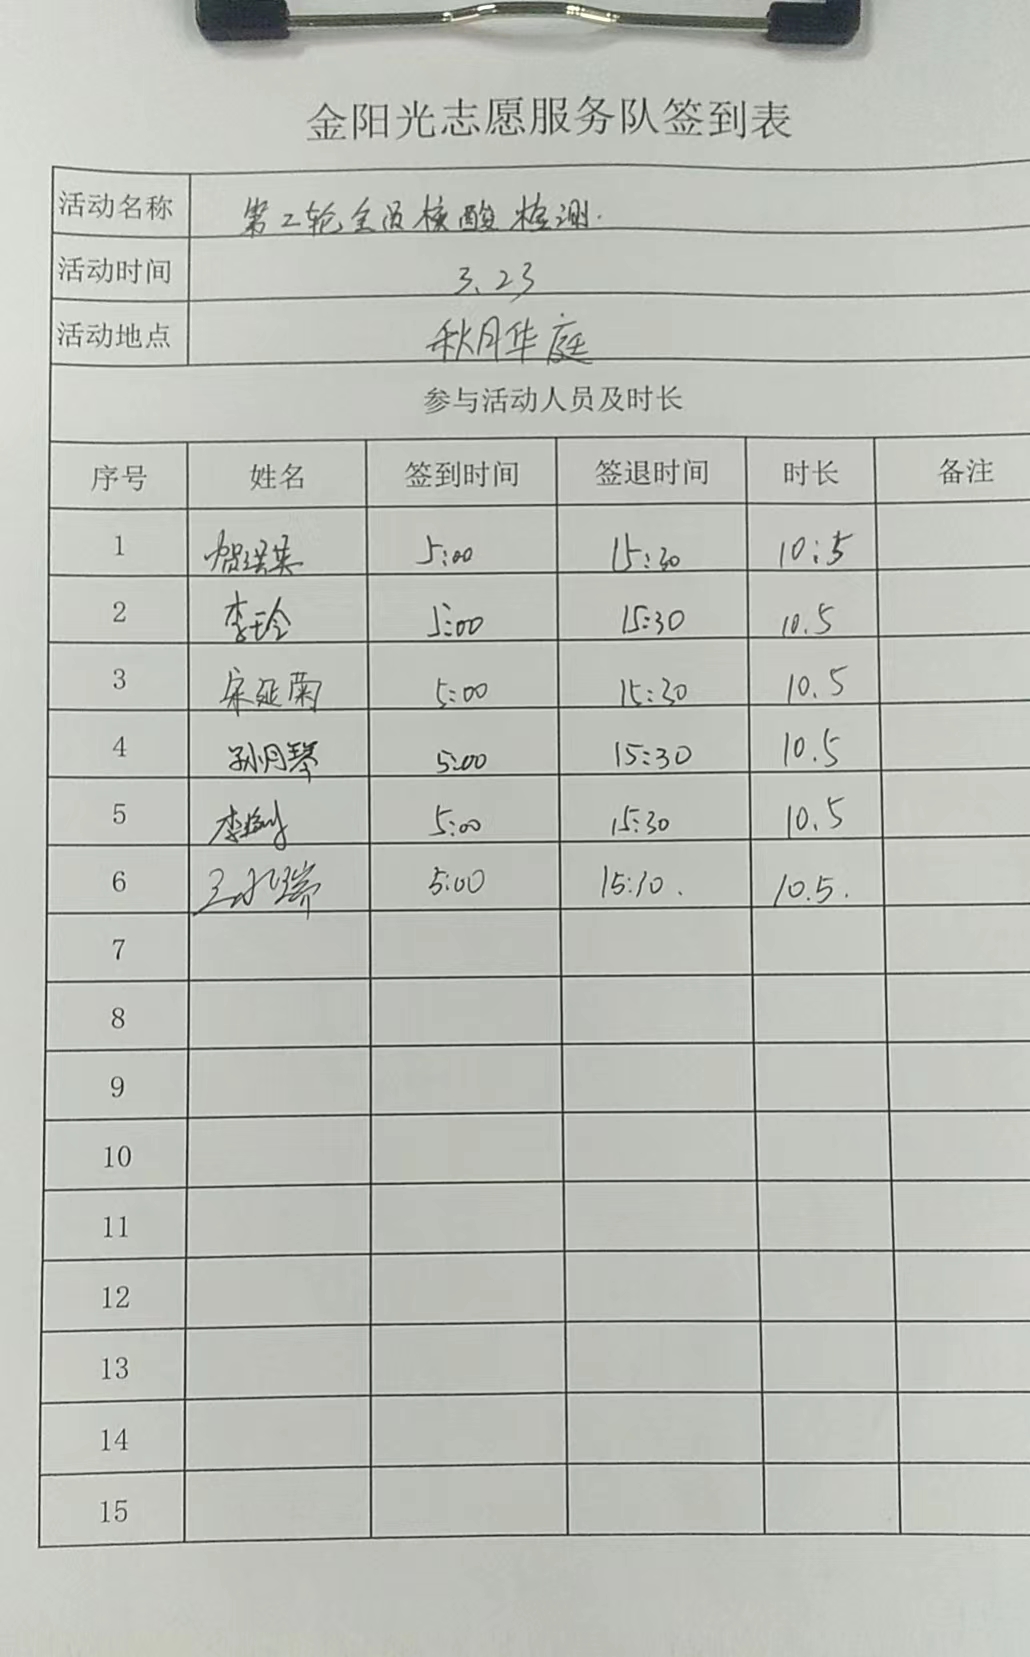 金阳光志愿服务队签到表
活动名称 第二轮全员核酸检测.
活动时间 3.23
活动地点 秋月华庭
参与活动人员及时长
序号 姓名 签到时间 签退时间 时长 备注
1 贺洪英 5:00 15:30 10:5
2 李玲 5:00 15:30 10.5
3 宋延菊 5:00 15:30 10.5
4 孙月琴 5:00 15:30 10.5
5 李 5:00 15:30 10.5
6 5:00 15:30. 10.5.
7
8
9
10
11
12
13
14
15